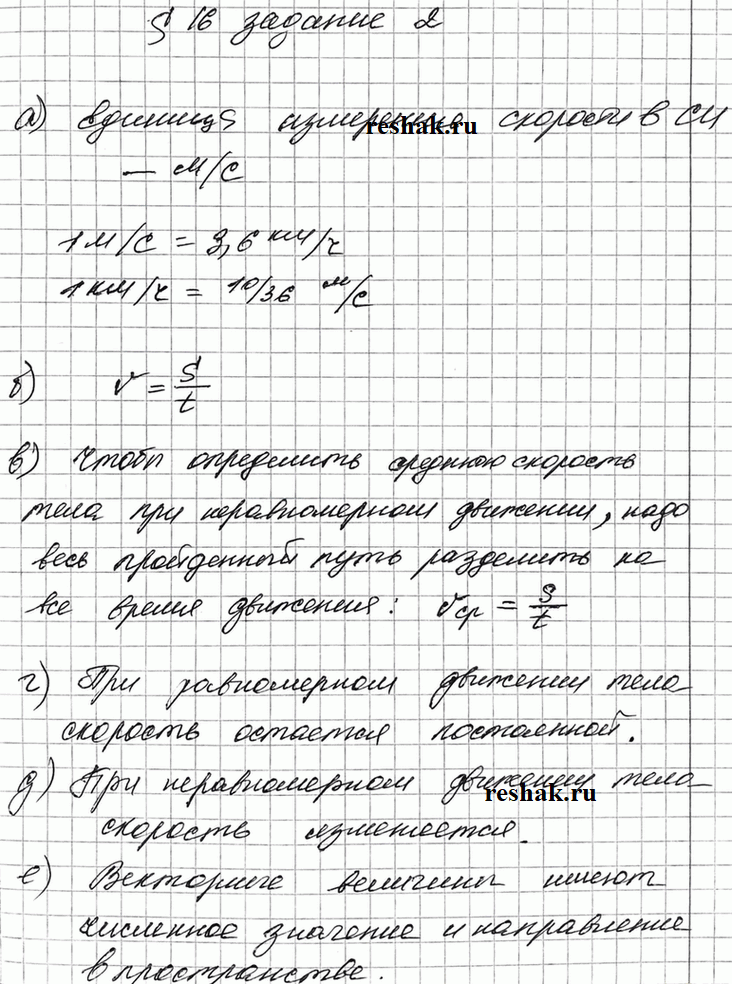 § 16 задание 2
а) единица измерения скорости в СИ
reshak.ru
— м/с
1 м/с = 3,6 км/ч
1 км/ч = 10/36 м/с
б) v = S/t
в) Чтобы определить среднюю скорость
тела при неравномерном движении, надо
весь пройденный путь разделить на
все время движения: vср = S/t
г) При равномерном движении тела
скорость остается постоянной.
д) При неравномерном движении тела
reshak.ru
скорость изменяется.
е) Векторные величины имеют
численное значение и направление
в пространстве.